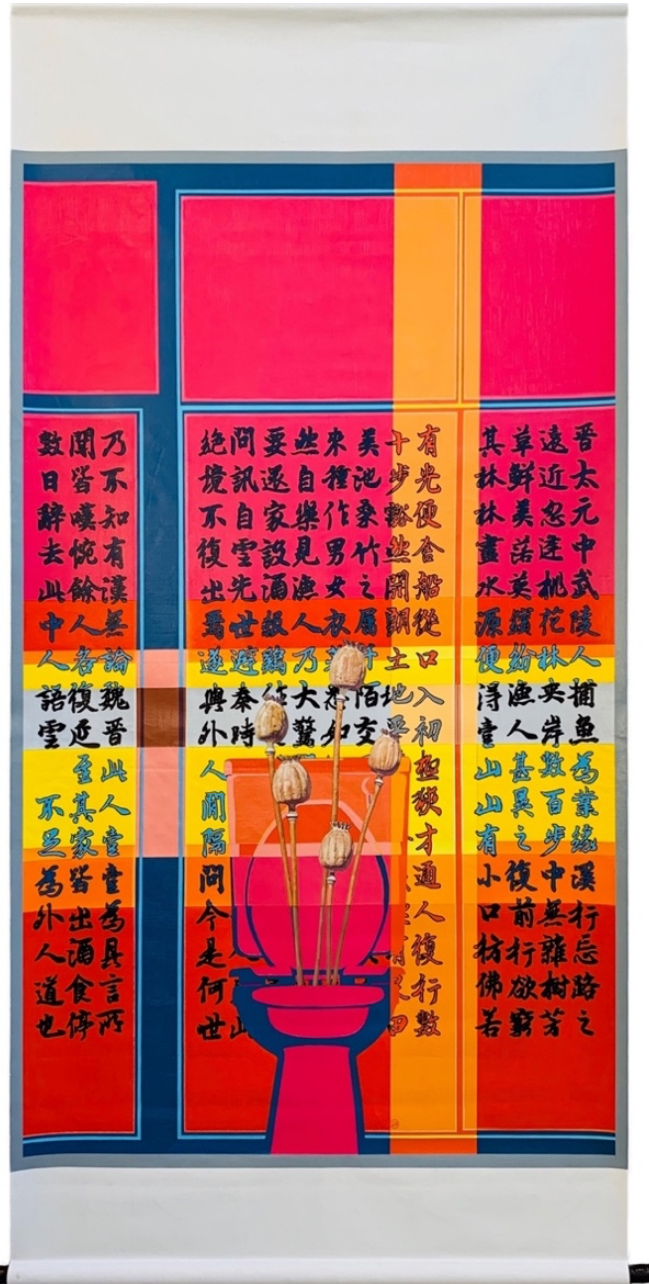 晉太元中武陵人捕魚為業緣溪行忘路之
遠近忽逢桃花林夾岸數百步中無雜樹芳
草鮮美落英繽紛漁人甚異之復前行欲窮
其林林盡水源便得壹山山有小口彷佛若
有光便舍船從口入初極狹才通人復行數
十步豁然開朗土地平
美池桑竹之屬阡陌交
來種作男女衣著悉如
然自樂見漁人乃大驚
要還家設酒殺雞作
問訊自雲先世避秦時
絕境不復出焉遂與外人間隔問今是何世
乃不知有漢無論魏晉此人壹壹為具言所
聞皆嘆惋餘人各復延至其家皆出酒食停
數日辭去此中人語雲 不足為外人道也